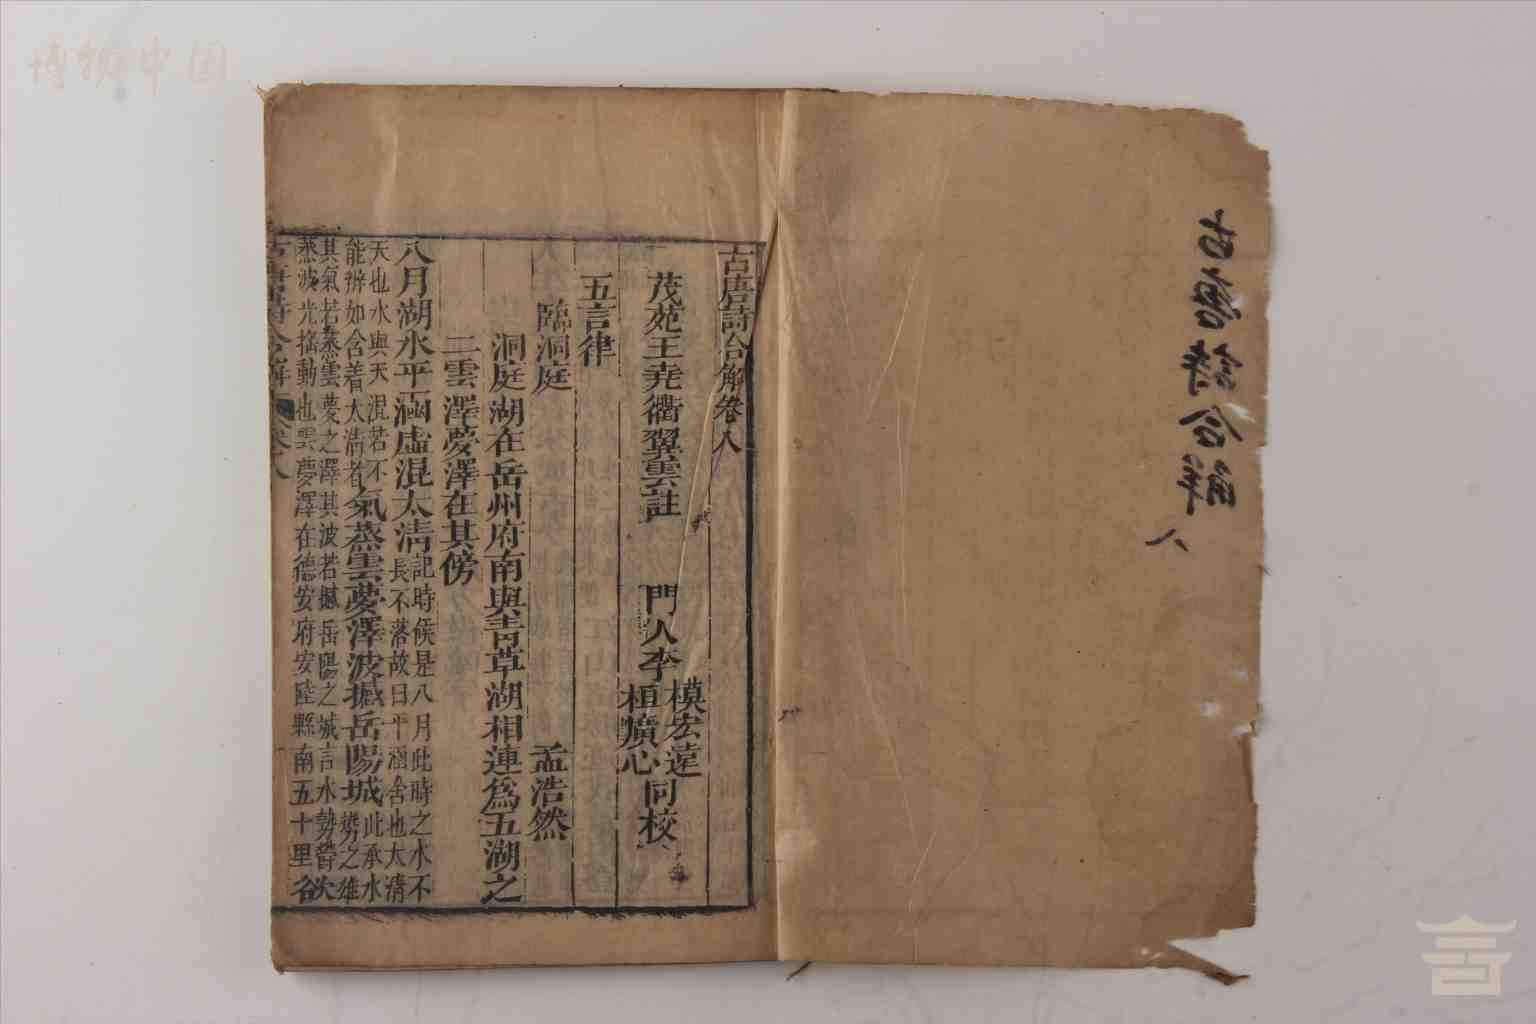 古唐詩合解
八
古唐詩合解卷八
茂苑王堯衢翼雲註 門人李模宏遠桓廣心同校
五言律
臨洞庭 孟浩然
洞庭湖在岳州府南與青草湖相連爲五湖之
二雲澤夢澤在其傍
八月湖水平涵虛混太清記時候是八月此時之水不長不落故曰平涵含也太清
天也水與天混若不能辨如含着太清者氣蒸雲夢澤波撼岳陽城此承水勢之雄
其氣若蒸雲夢之澤其波若撼岳陽之城言水勢
蒸波光搖動也雲夢澤在德安府安陸縣南五十里名
古唐詩合解 卷八
博物中国